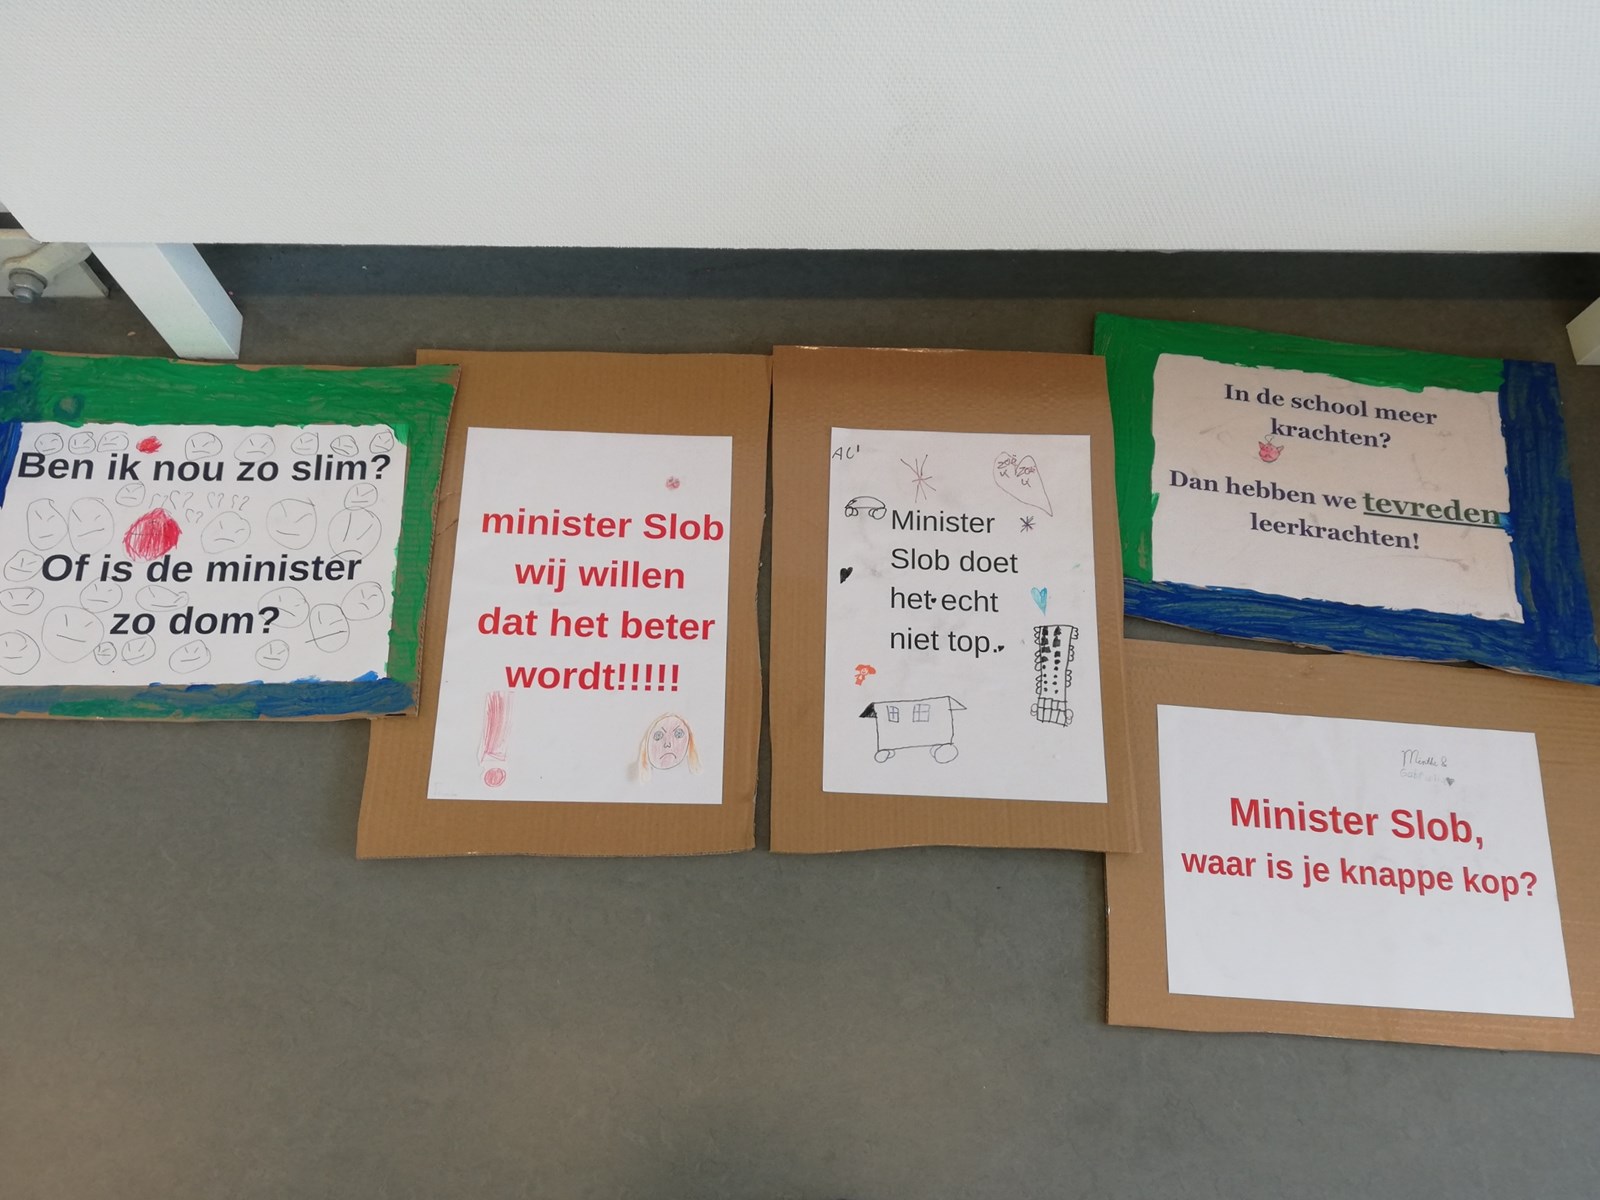 Ben ik nou zo slim?
Of is de minister
zo dom?
minister Slob
wij willen
dat het beter
wordt!!!!!
Minister
Slob doet
het echt
niet top.
In de school meer
krachten?
Dan hebben we tevreden
leerkrachten!
Minister Slob,
waar is je knappe kop?